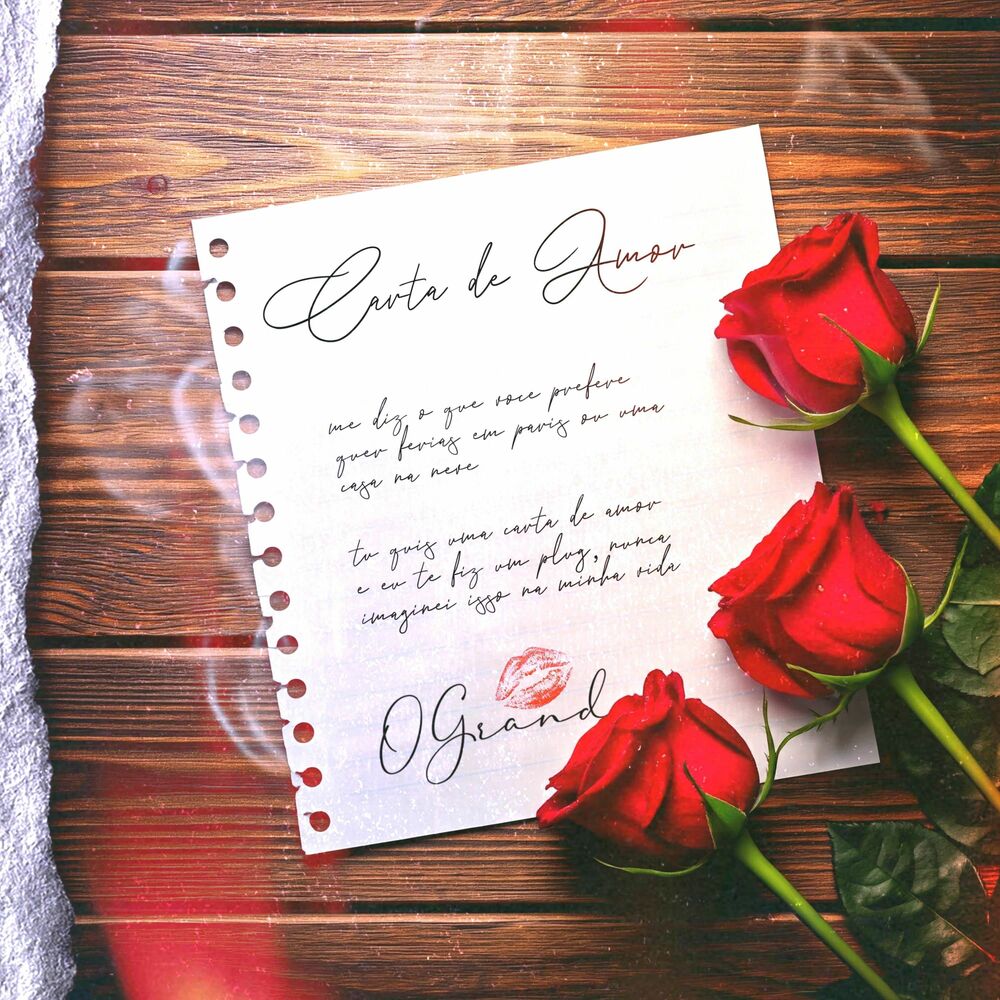 Carta de Amor
me diz o que voce prefere
quer ferias em paris ou uma
casa na neve
tu quis uma carta de amor
e eu te fiz um plug, nunca
imaginei isso na minha vida
OGrand